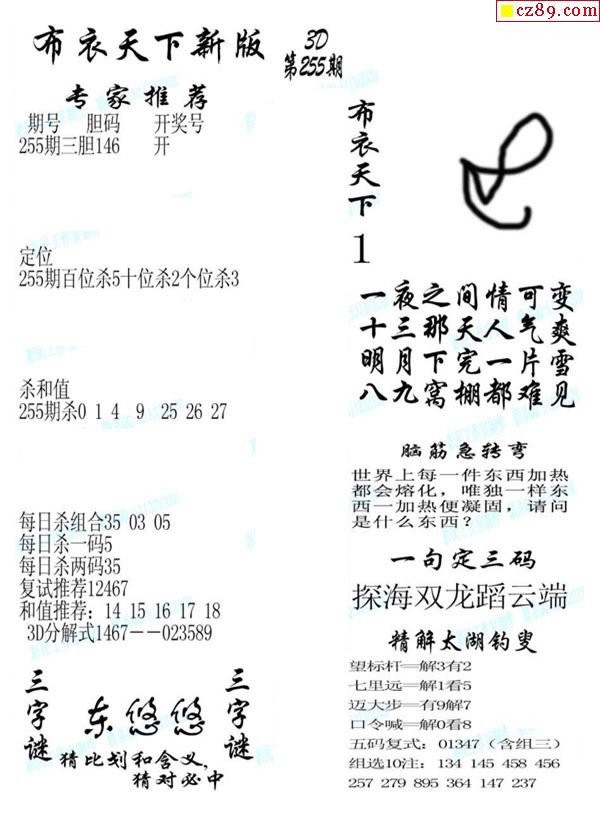 cz89.com
布衣天下新版
3D
第255期
专家推荐
期号 胆码 开奖号
255期三胆146 开
定位
255期百位杀5十位杀2个位杀3
杀和值
255期杀0 1 4 9 25 26 27
每日杀组合35 03 05
每日杀一码5
每日杀两码35
复试推荐12467
和值推荐：14 15 16 17 18
3D分解式1467--023589
三字谜
东悠悠
三字谜
猜比划和含义，
猜对必中
布衣天下
1
一夜之间情可变
十三那天人气爽
明月下完一片雪
八九窝棚都难见
脑筋急转弯
世界上每一件东西加热
都会熔化，唯独一样东
西一加热便凝固，请问
是什么东西？
一句定三码
探海双龙蹈云端
精解太湖钓叟
望标杆==解3有2
七里远==解1看5
迈大步==有9解7
口令喊==解0看8
五码复式：01347（含组三）
组选10注：134 145 458 456
257 279 895 364 147 237